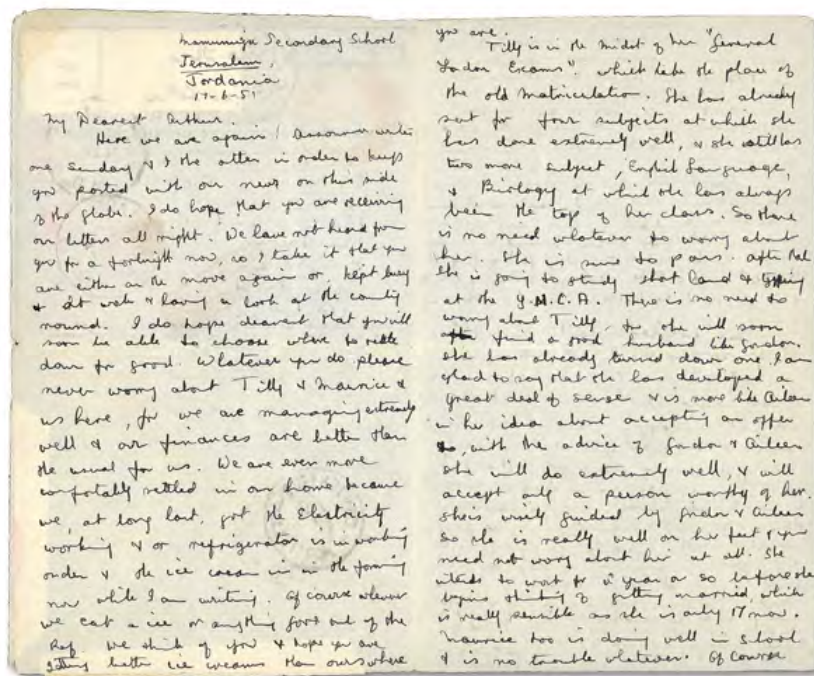 Mamuniya Secondary School
Jerusalem,
Jordania
17-6-51
My Dearest Arthur.
Here we are again! writes
one Sunday & I the other in order to keep
you posted with our news on this side
of the globe. I do hope that you are receiving
our letters all right. We have not heard from
you for a fortnight now, so I take it that you
are either on the move again or kept busy
& at work & having a look at the country
round. I do hope dearest that you will
soon be able to choose where to settle
down for good. Whatever you do please
never worry about Tilly & Maurice &
us here, for we are managing extremely
well & our finances are better than
the usual for us. We are even more
comfortably settled in our home because
we, at long last, got the Electricity
working & our refrigerator is in working
order & the ice cream in in the forming
now while I am writing. Of course whenever
we eat a ice or anything good out of the
Ref. we think of you & hope you are
getting better ice creams than ours where
you are.
Tilly is in the midst of her "General
London Exams". which take the place of
the old Matriculation. She has already
sat for four subjects at which she
has done extremely well, & she still has
two more subject, English Language,
& Biology at which she has always
been the top of her class. So there
is no need whatever to worry about
her. She is sure to pass. After that
she is going to study short hand & typing
at the Y.M.C.A. There is no need to
worry about Tilly, for she will soon
find a good husband like Gordon.
She has already turned down one. I am
glad to say that she has developed a
great deal of sense & is more like Aileen
in her idea about accepting an offer
, with the advice of Gordon & Aileen
she will do extremely well, & will
accept only a person worthy of her.
she is wisely guided by Gordon & Aileen
So she is really well on her feet & you
need not worry about her at all. She
intends to work for a year or so before she
begins thinking of getting married, which
is really sensible as she is only 17 now.
Maurice too is doing well in School
& is no trouble whatever. Of course